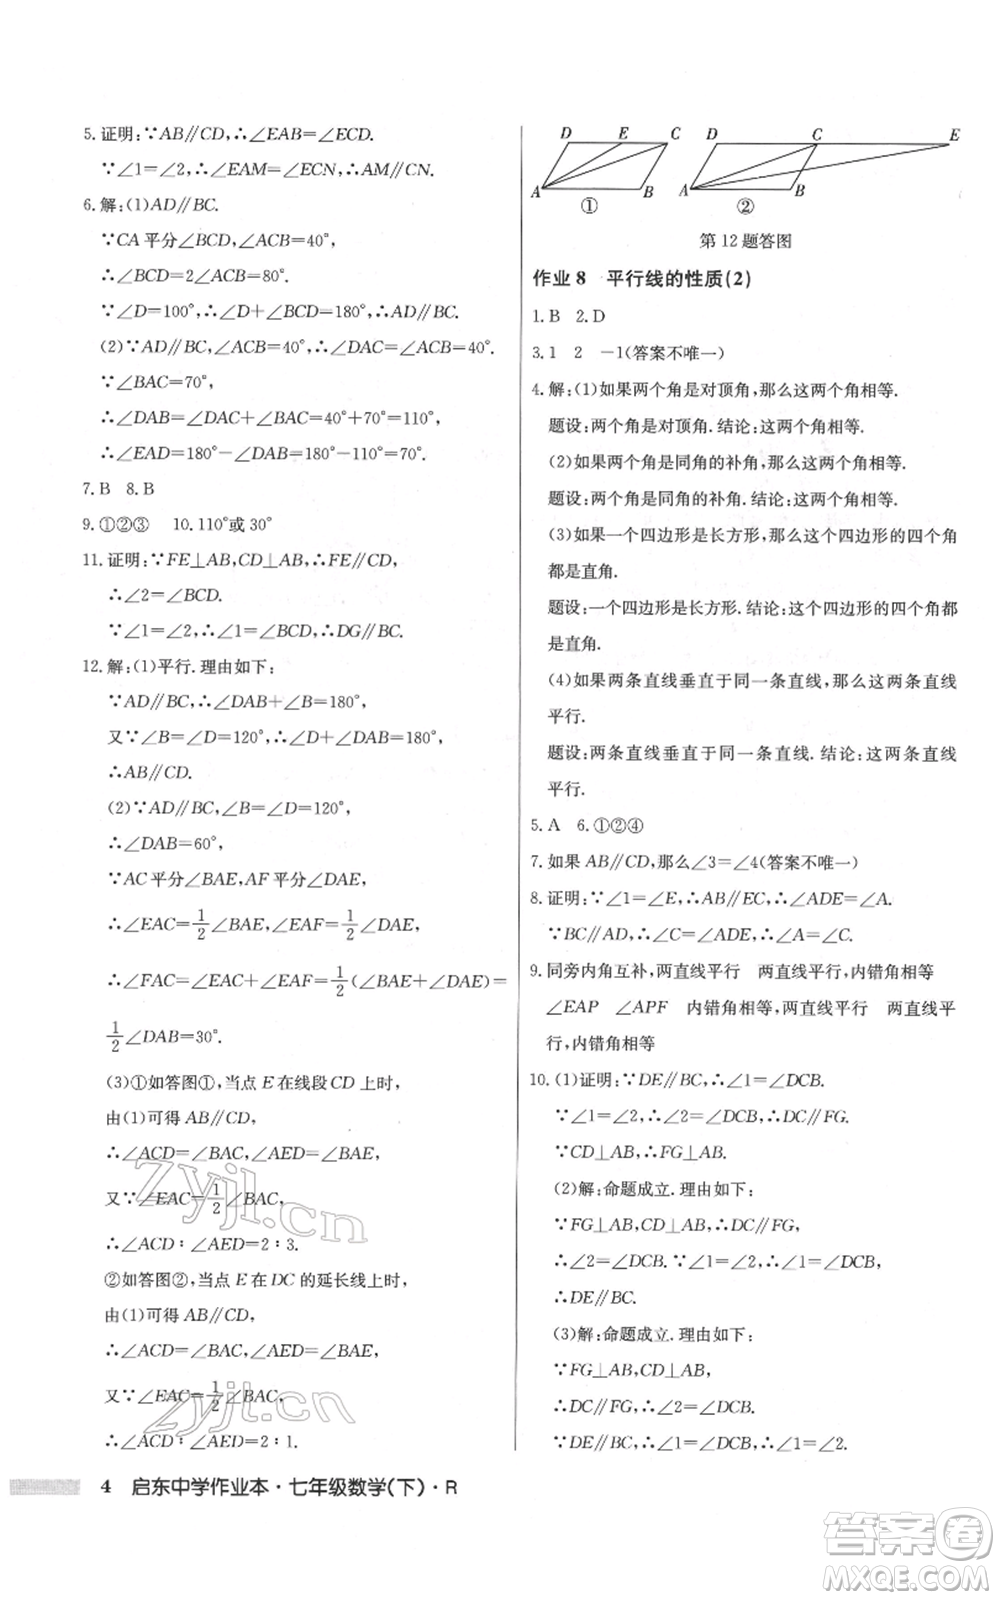 5.证明:∵AB∥CD,∴∠EAB=∠ECD.
∵∠1=∠2,∴∠EAM=∠ECN,∴AM∥CN.
6.解:(1)AD∥BC.
∵CA平分∠BCD,∠ACB=40°,
∴∠BCD=2∠ACB=80°.
∵∠D=100°,∴∠D+∠BCD=180°,∴AD∥BC.
(2)∵AD∥BC,∠ACB=40°,∴∠DAC=∠ACB=40°.
∵∠BAC=70°,
∴∠DAB=∠DAC+∠BAC=40°+70°=110°,
∴∠EAD=180°-∠DAB=180°-110°=70°.
7.B 8.B
9.①②③ 10.110°或30°
11.证明:∵FE⊥AB,CD⊥AB,∴FE∥CD,
∴∠2=∠BCD.
∵∠1=∠2,∴∠1=∠BCD,∴DG∥BC.
12.解:(1)平行.理由如下:
∵AD∥BC,∴∠DAB+∠B=180°,
又∵∠B=∠D=120°,∴∠D+∠DAB=180°,
∴AB∥CD.
(2)∵AD∥BC,∠B=∠D=120°,
∴∠DAB=60°,
∵AC平分∠BAE,AF平分∠DAE,
∴∠EAC=1/2∠BAE,∠EAF=1/2∠DAE,
∴∠FAC=∠EAC+∠EAF=1/2(∠BAE+∠DAE)=
1/2∠DAB=30°.
(3)①如答图①,当点E在线段CD上时,
由(1)可得AB∥CD,
∴∠ACD=∠BAC,∠AED=∠BAE,
又∵∠EAC=1/2∠BAC,
∴∠ACD∶∠AED=2∶3.
②如答图②,当点E在DC的延长线上时,
由(1)可得AB∥CD,
∴∠ACD=∠BAC,∠AED=∠BAE,
又∵∠EAC=1/2∠BAC,
∴∠ACD∶∠AED=2∶1.
D E C D C E
A B A B
① ②
第12题答图
作业8 平行线的性质(2)
1.B 2.D
3.1 2 -1(答案不唯一)
4.解:(1)如果两个角是对顶角,那么这两个角相等.
题设:两个角是对顶角.结论:这两个角相等.
(2)如果两个角是同角的补角,那么这两个角相等.
题设:两个角是同角的补角.结论:这两个角相等.
(3)如果一个四边形是长方形,那么这个四边形的四个角
都是直角.
题设:一个四边形是长方形.结论:这个四边形的四个角都
是直角.
(4)如果两条直线垂直于同一条直线,那么这两条直线
平行.
题设:两条直线垂直于同一条直线.结论:这两条直线
平行.
5.A 6.①②④
7.如果AB∥CD,那么∠3=∠4(答案不唯一)
8.证明:∵∠1=∠E,∴AB∥EC,∴∠ADE=∠A.
∵BC∥AD,∴∠C=∠ADE,∴∠A=∠C.
9.同旁内角互补,两直线平行 两直线平行,内错角相等
∠EAP ∠APF 内错角相等,两直线平行 两直线平
行,内错角相等
10.(1)证明:∵DE∥BC,∴∠1=∠DCB.
∵∠1=∠2,∴∠2=∠DCB,∴DC∥FG.
∵CD⊥AB,∴FG⊥AB.
(2)解:命题成立.理由如下:
∵FG⊥AB,CD⊥AB,∴DC∥FG,
∴∠2=∠DCB.∵∠1=∠2,∴∠1=∠DCB,
∴DE∥BC.
(3)解:命题成立.理由如下:
∵FG⊥AB,CD⊥AB,
∴DC∥FG,∴∠2=∠DCB.
∵DE∥BC,∴∠1=∠DCB,∴∠1=∠2.
4 启东中学作业本·七年级数学(下)·R
Zyjl.cn
Zyjl.cn
答案卷
MXQE.COM